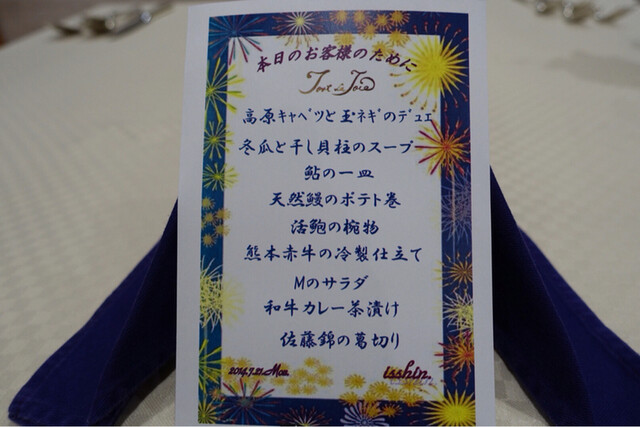 本日のお客様のために
Toot La Joie
高原キャベツと玉ネギのデュエ
冬瓜と干し貝柱のスープ
鮎の一皿
天然鰻のポテト巻
活鮑の椀物
熊本赤牛の冷製仕立て
Mのサラダ
和牛カレー茶漬け
佐藤錦の葛切り
2014.7.21.Mon.
isshin.